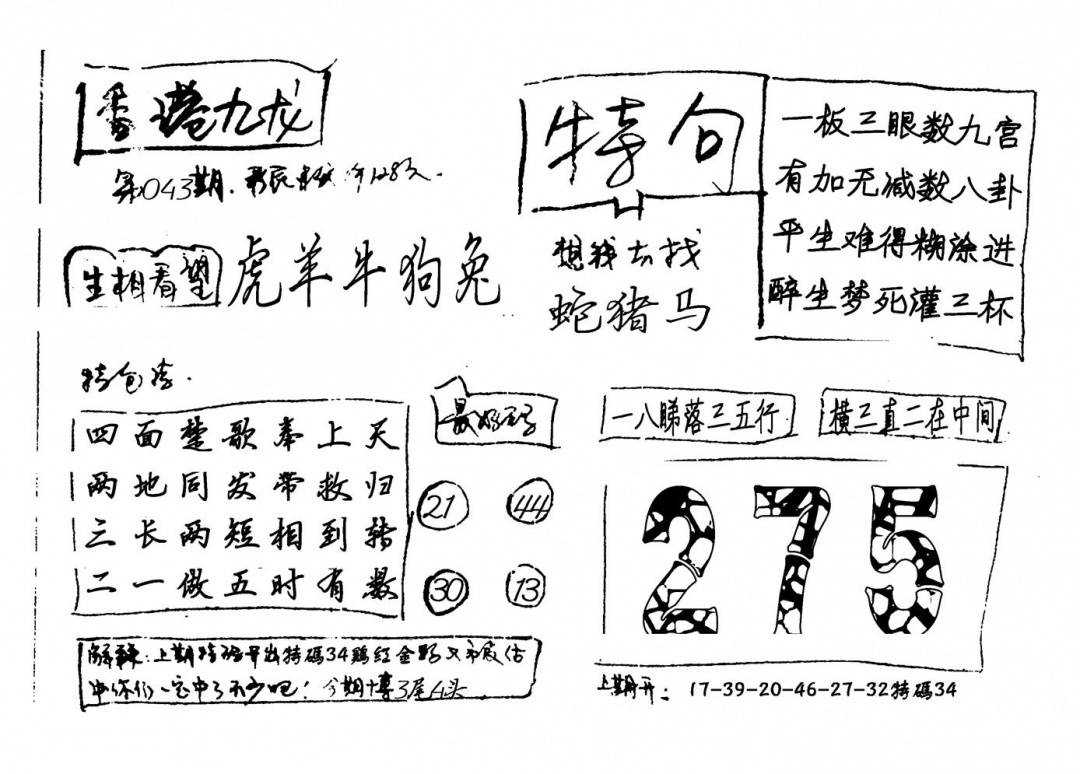 香港九龙
第043期.
生相看望
虎羊牛狗兔
特句
想我去找
蛇猪马
一板三眼数九宫
有加无减数八卦
平生难得糊涂进
醉生梦死灌三杯
四面楚歌奉上天
两地同发带救归
三长两短相到转
二一做五时有数
21 44
30 13
一八睇落三五行
横三直二在中间
275
上期开出特碼34鶏红金
中你们一定中了不少吧!今期博3尾4头
上期开: 17-39-20-46-27-32特碼34